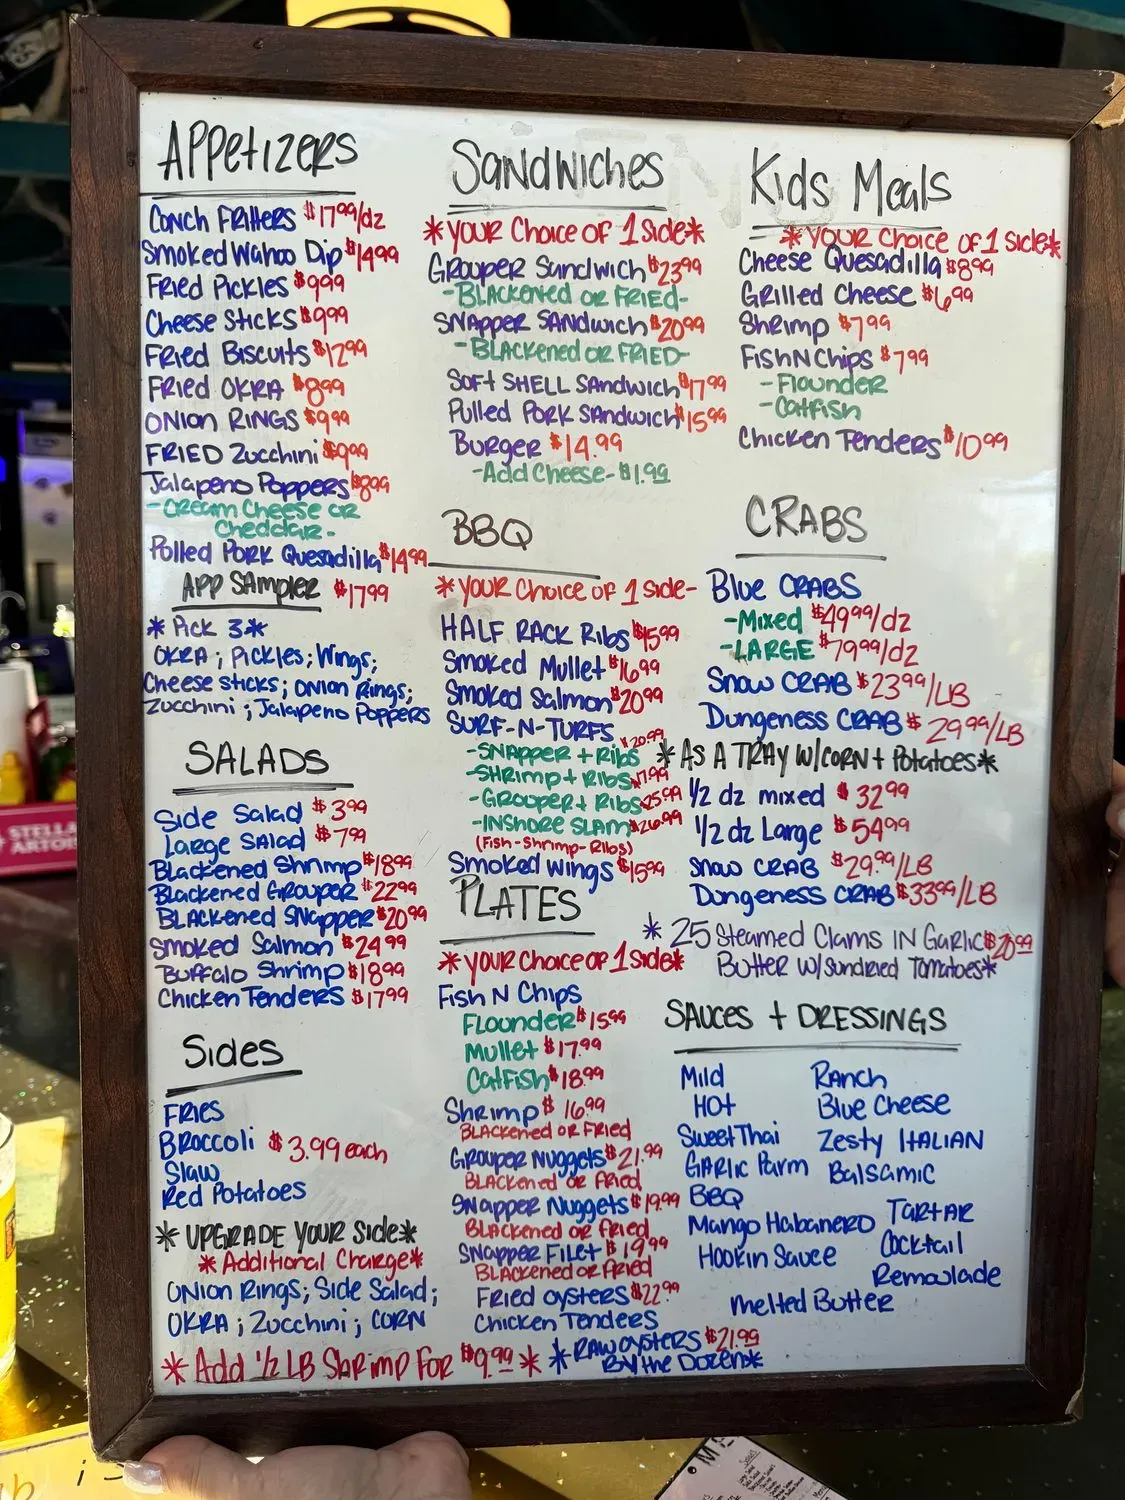 APPetIZERS
Conch Fritters $17.99/dz
Smoked Wahoo Dip $14.99
Fried Pickles $9.99
Cheese Sticks $9.99
Fried Biscuits $12.99
Fried OKRA $8.99
ONION RINGS $9.99
FRIED Zucchini $9.99
Jalapeno Poppers $8.99
-Cream Cheese or
Cheddar-
Polled PORK Quesadilla $14.99
APP SAmpler $17.99
*Pick 3*
OKRA; Pickles; Wings;
Cheese sticks; Onion Rings;
Zucchini; Jalapeno Poppers
SALADS
Side Salad $3.99
Large Salad $7.99
Blackened Shrimp $18.99
Blackened Grouper $22.99
BLACKened SNapper $20.99
Smoked Salmon $24.99
Buffalo Shrimp $18.99
Chicken Tenders $17.99
Sides
FRIES
BROCCOLI $3.99 each
Slaw
Red Potatoes
*UPGRADE YOUR Side*
*Additional Charge*
Onion Rings; Side Salad;
OKRA; Zucchini; CORN
*Add 1/2 LB Shrimp For $9.99*
Sandwiches
*YOUR Choice OF 1 Side*
Grouper Sandwich $23.99
-BLACKened or FRIED-
SNapper SANdwich $20.99
-BLACKened or FRIED-
Soft SHELL Sandwich $17.99
Pulled PORK Sandwich $15.99
Burger $14.99
-Add Cheese- $1.99
BBQ
*YOUR Choice OF 1 side-
HALF RACK Ribs $15.99
Smoked Mullet $16.99
Smoked Salmon $20.99
SURF-N-TURFS
-SNapper + Ribs $20.99
-Shrimp + Ribs $17.99
-Grouper + Ribs $25.99
-INShore SLAM $26.99
(Fish-Shrimp-Ribs)
Smoked Wings $15.99
PLATES
*YOUR Choice OF 1 Side*
Fish N Chips
Flounder $15.99
Mullet $17.99
Catfish $18.99
Shrimp $16.99
BLACKened OR Fried
Grouper Nuggets $21.99
BLACKened or Fried
SNapper Nuggets $19.99
BLACKened or Fried
SNapper Filet $19.99
BLACKened or Fried
Fried oysters $22.99
Chicken Tenders
*RAW oysters $21.99
By the Dozen*
Kids Meals
*YOUR Choice OF 1 Side*
Cheese Quesadilla $8.99
Grilled Cheese $6.99
Shrimp $7.99
Fish N Chips $7.99
-Flounder
-Catfish
Chicken Tenders $10.99
CRABS
Blue CRABS
-Mixed $49.99/dz
-LARGE $79.99/dz
Snow CRAB $23.99/LB
Dungeness CRAB $29.99/LB
*AS A TRAY W/CORN + Potatoes*
1/2 dz mixed $32.99
1/2 dz Large $54.99
Snow CRAB $29.99/LB
Dungeness CRAB $33.99/LB
*25 Steamed Clams IN Garlic $20.99
Butter w/ Sundried Tomatoes*
SAUCES + DRESSINGS
Mild
Hot
Sweet Thai
Garlic Parm
BBQ
Mango Habanero
Hookin Sauce
Ranch
Blue Cheese
Zesty ITALIAN
Balsamic
Tartar
Cocktail
Remoulade
Melted Butter
STELLA
ARTOIS